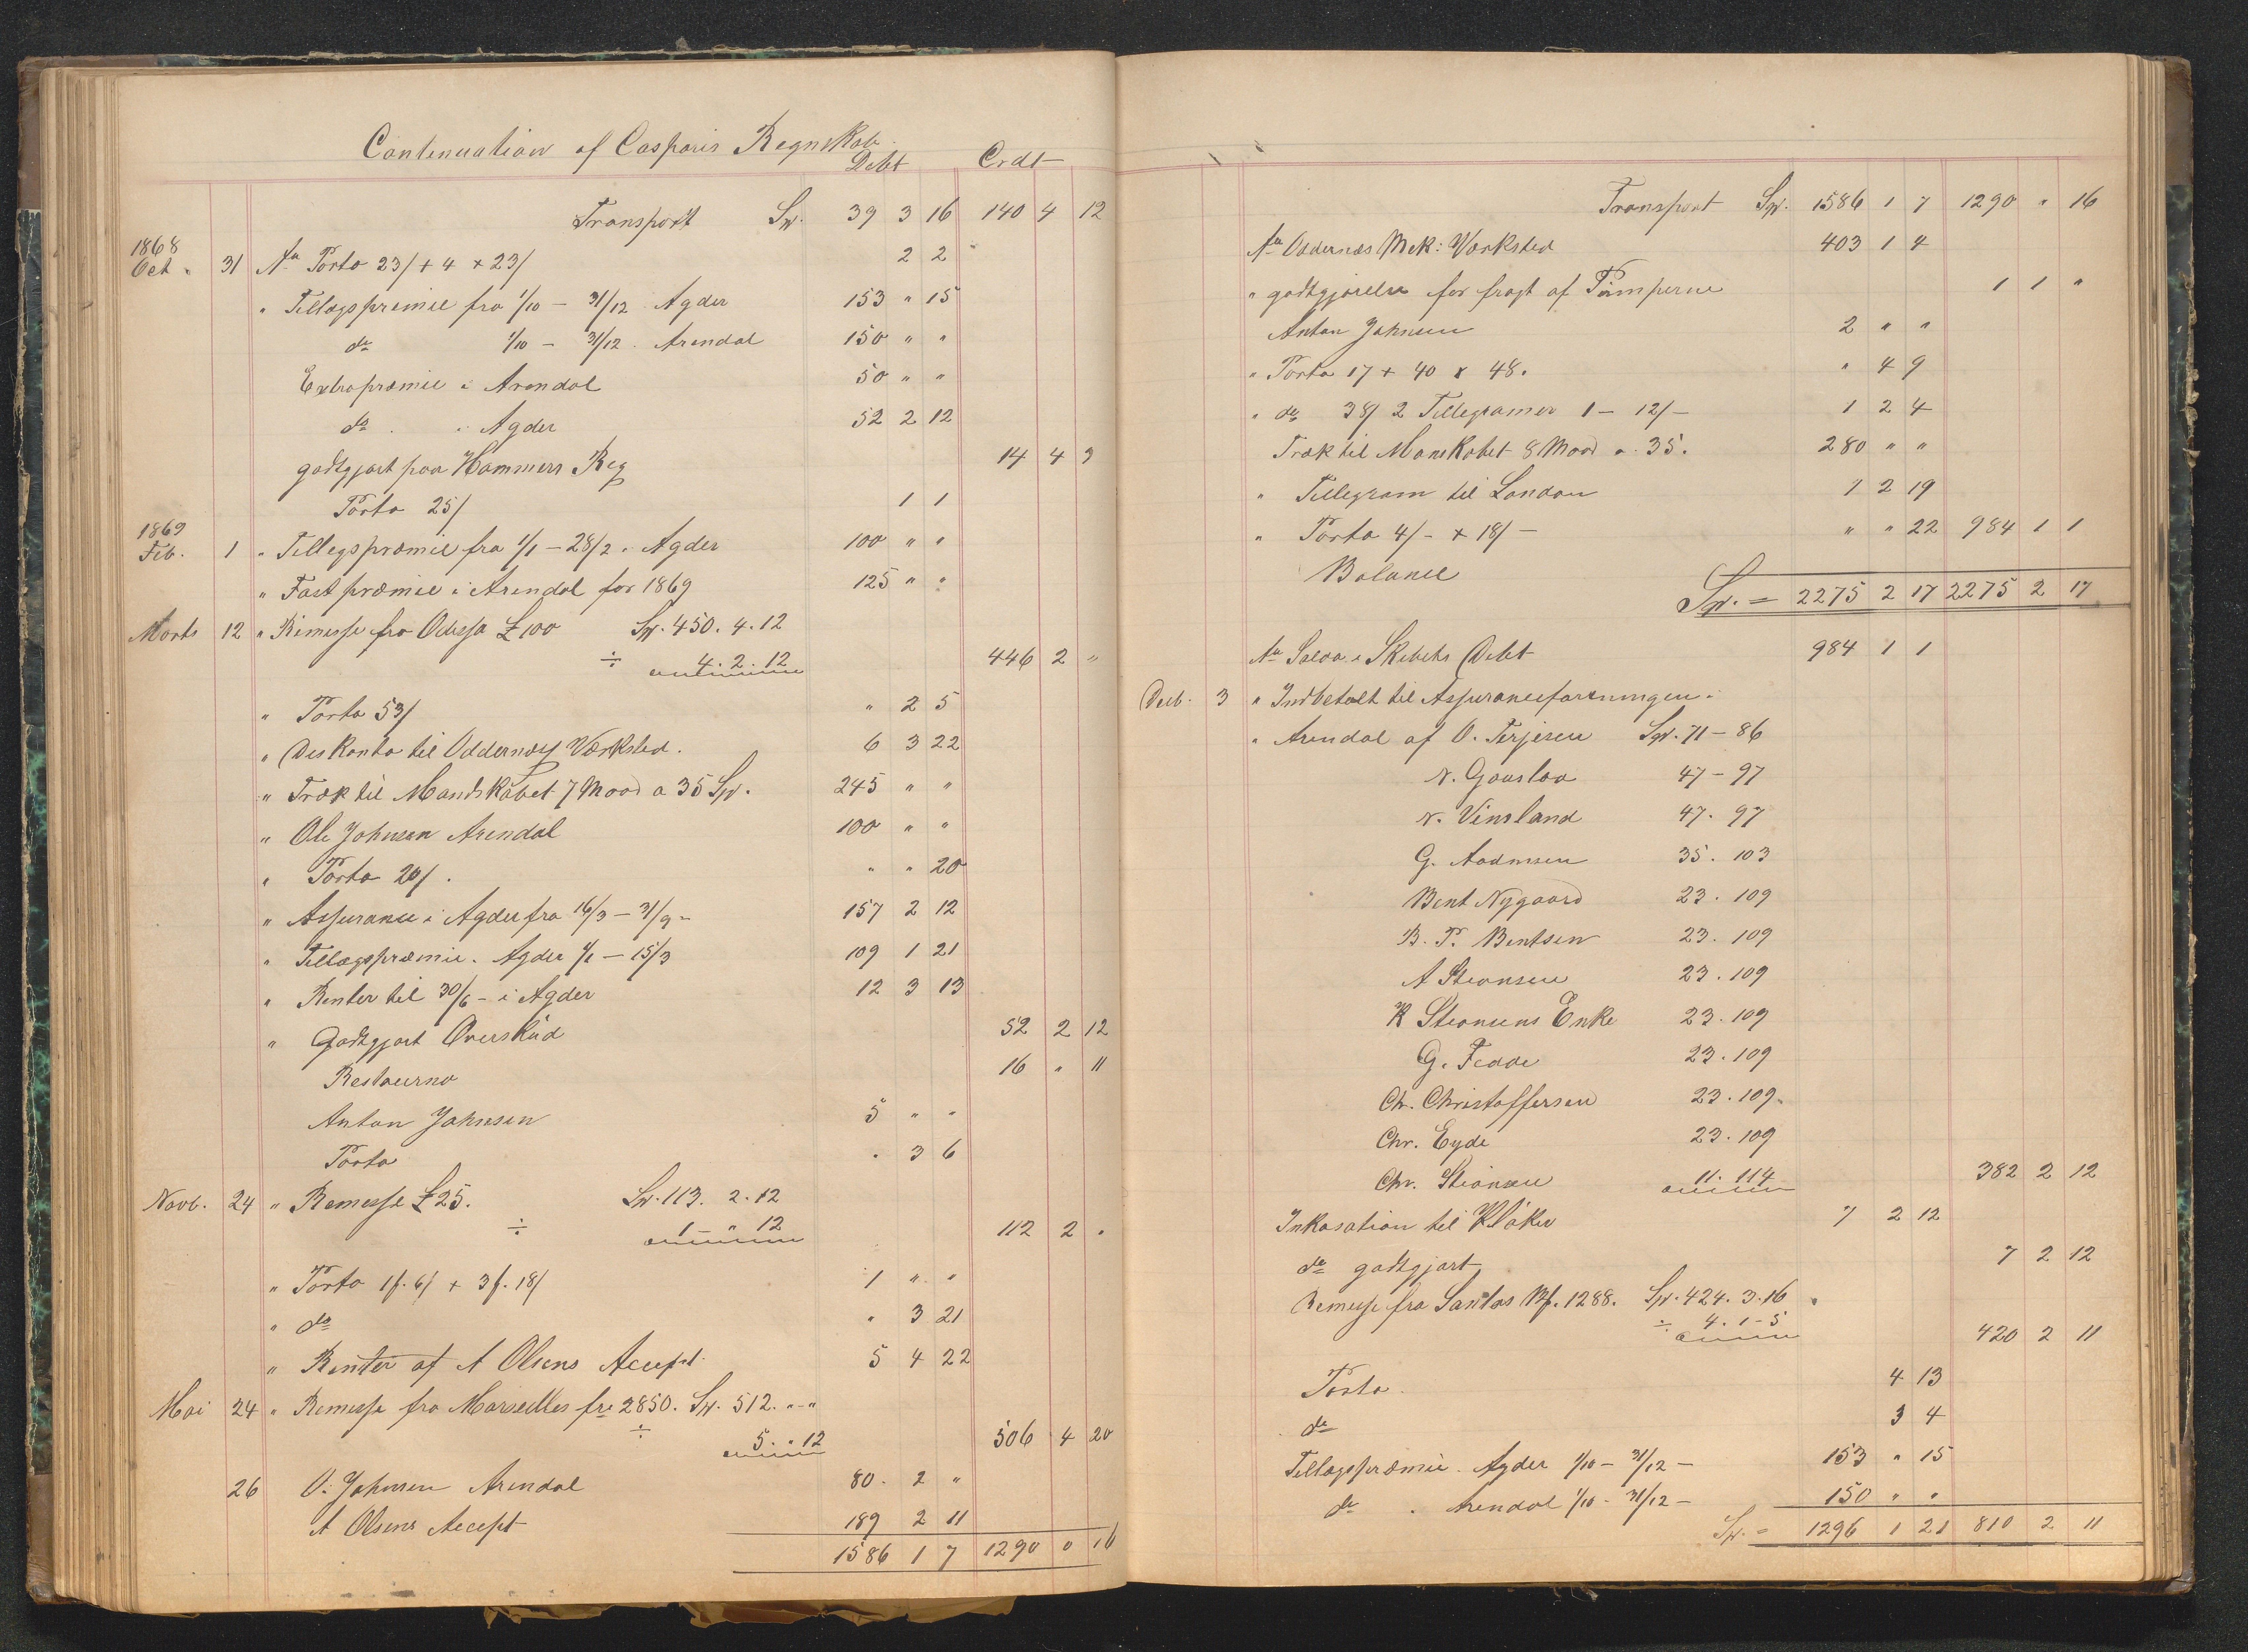 Contenuation af Casparis Regnskab.
Debt Crdt
Transport Sp. 39 3 16 140 4 12
1868
Oct. 31 Ar Porto 23/ + 4 + 23/ 2 2
" Tillægspremie fra 1/10 - 31/12 Agder 153 " 15
do 1/10 - 31/12 . Arendal 150 " "
Extrapræmie i Arendal 50 " "
do . i Agder 52 2 12
godtgjort paa Hammers Reg 14 4 9
Porto 25/ 1 1
1869
Feb. 1 " Tillegspræmie fra 1/1 - 28/2 i Agder 100 " "
" Fast præmie i Arendal for 1869 125 " "
Marts 12 " Rimesse fra Odessa £ 100 Sp. 450. 4. 12
÷ 4. 2. 12 446 2 "
" Porto 53/ " 2 5
" Diskonto til Oddernæs Værksted. 6 3 22
" Træk til Mandskabet 7 Maad a 35 Sp. 245 " "
" Ole Johnsen Arendal 100 " "
" Porto 20/. " " 20
" Assurance i Agder fra 16/3 - 31/9 - 157 2 12
" Tillægspræmie. Agder 1/1 - 15/3 109 1 21
" Renter til 30/6 - i Agder 12 3 13
" Godtgjort Overskud 52 2 12
Restaurno 16 " 11
Anton Johnsen 5 " "
Porto " 3 6
Novb. 24 " Remesse £ 25. Sp. 113. 2. 12
÷ 1 - " 12 112 2 "
" Porto 1f. 6/ + 3f. 18/ 1 " "
" do " 3 21
" Renter af A Olsens Accept. 5 4 22
Mai 24 " Remesse fra Marseilles frc 2850. Sp. 512. " - "
÷ 5. " 12 506 4 20
26 O. Johnsen Arendal 80. 2 "
A Olsens Accept 189 2 11
1586 1 7 1290 0 16
Transport Sp. 1586 1 7 1290 " 16
Ar Oddernæs Mek: Værksted 403 1 4
" godtgjørelse for fragt af Pumperne 1 1 "
Anton Johnsen 2 " "
" Porto 17 + 40 + 48. " 4 9
" do 38/ 2 Tillegramer 1 - 12/ - 1 2 4
Træk til Manskabet 8 Maad a 35. 280 " "
" Tillegram til London 1 2 19
" Porto 4/- + 18/ - " " 22 984 1 1
Balance
Sp. = 2275 2 17 2275 2 17
Ar Saldo i Skibets Debt 984 1 1
Decb. 3 " Indbetalt til Assuranceforeningen i
" Arendal af O. Terjesen Sp. 71 - 86
N. Gauslaa 47 - 97
N. Vinsland 47. 97
G. Aadnsen 35. 103
Bent Nygaard 23. 109
B. P. Bentsen 23. 109
A Steansen 23. 109
K Steansens Enke 23. 109
G. Fedde 23. 109
Ch. Christoffersen 23. 109.
Chr. Eyde 23. 109
Chr. Steansen 11. 114 382 2 12
Inkasation til Kloker 7 2 12
do godtgjort 7 2 12
Remesse fra Santos Bf. 1288. Sp. 424. 3. 16
÷ 4. 1 - 5 420 2 11
Porto. 4 13
do 3 4
Tillægspræmie. Agder 1/10 - 31/12 - 153 " 15
do . Arendal 1/10 - 31/12 - 150 " "
Sp. = 1296 1 21 810 2 11